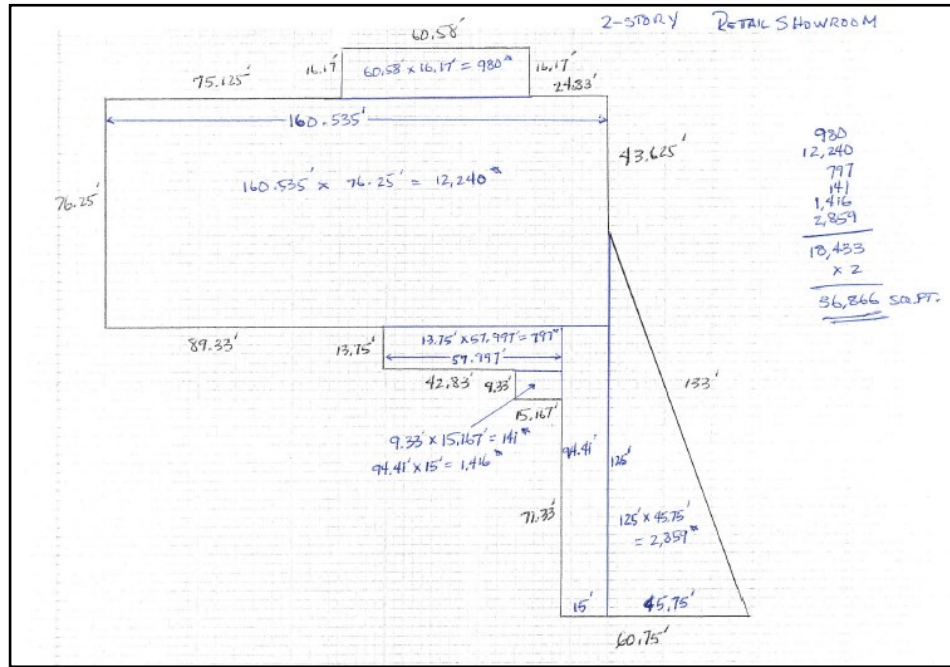 2-STORY RETAIL SHOWROOM
60.58'
75.125'
16.17'
60.58' x 16.17' = 980
16.17'
24.83'
160.535'
43.625'
76.25'
160.535' x 76.25' = 12,240
980
12,240
797
141
1,416
2,859
18,433
x 2
36,866 SQ.FT.
89.33'
13.75'
13.75' x 57.997' = 797
57.997'
42.83'
9.33'
15.167'
133'
9.33' x 15.167' = 141
94.41' x 15' = 1,416
94.41'
125'
71.33'
125' x 45.75'
= 2,859
15'
45.75'
60.75'